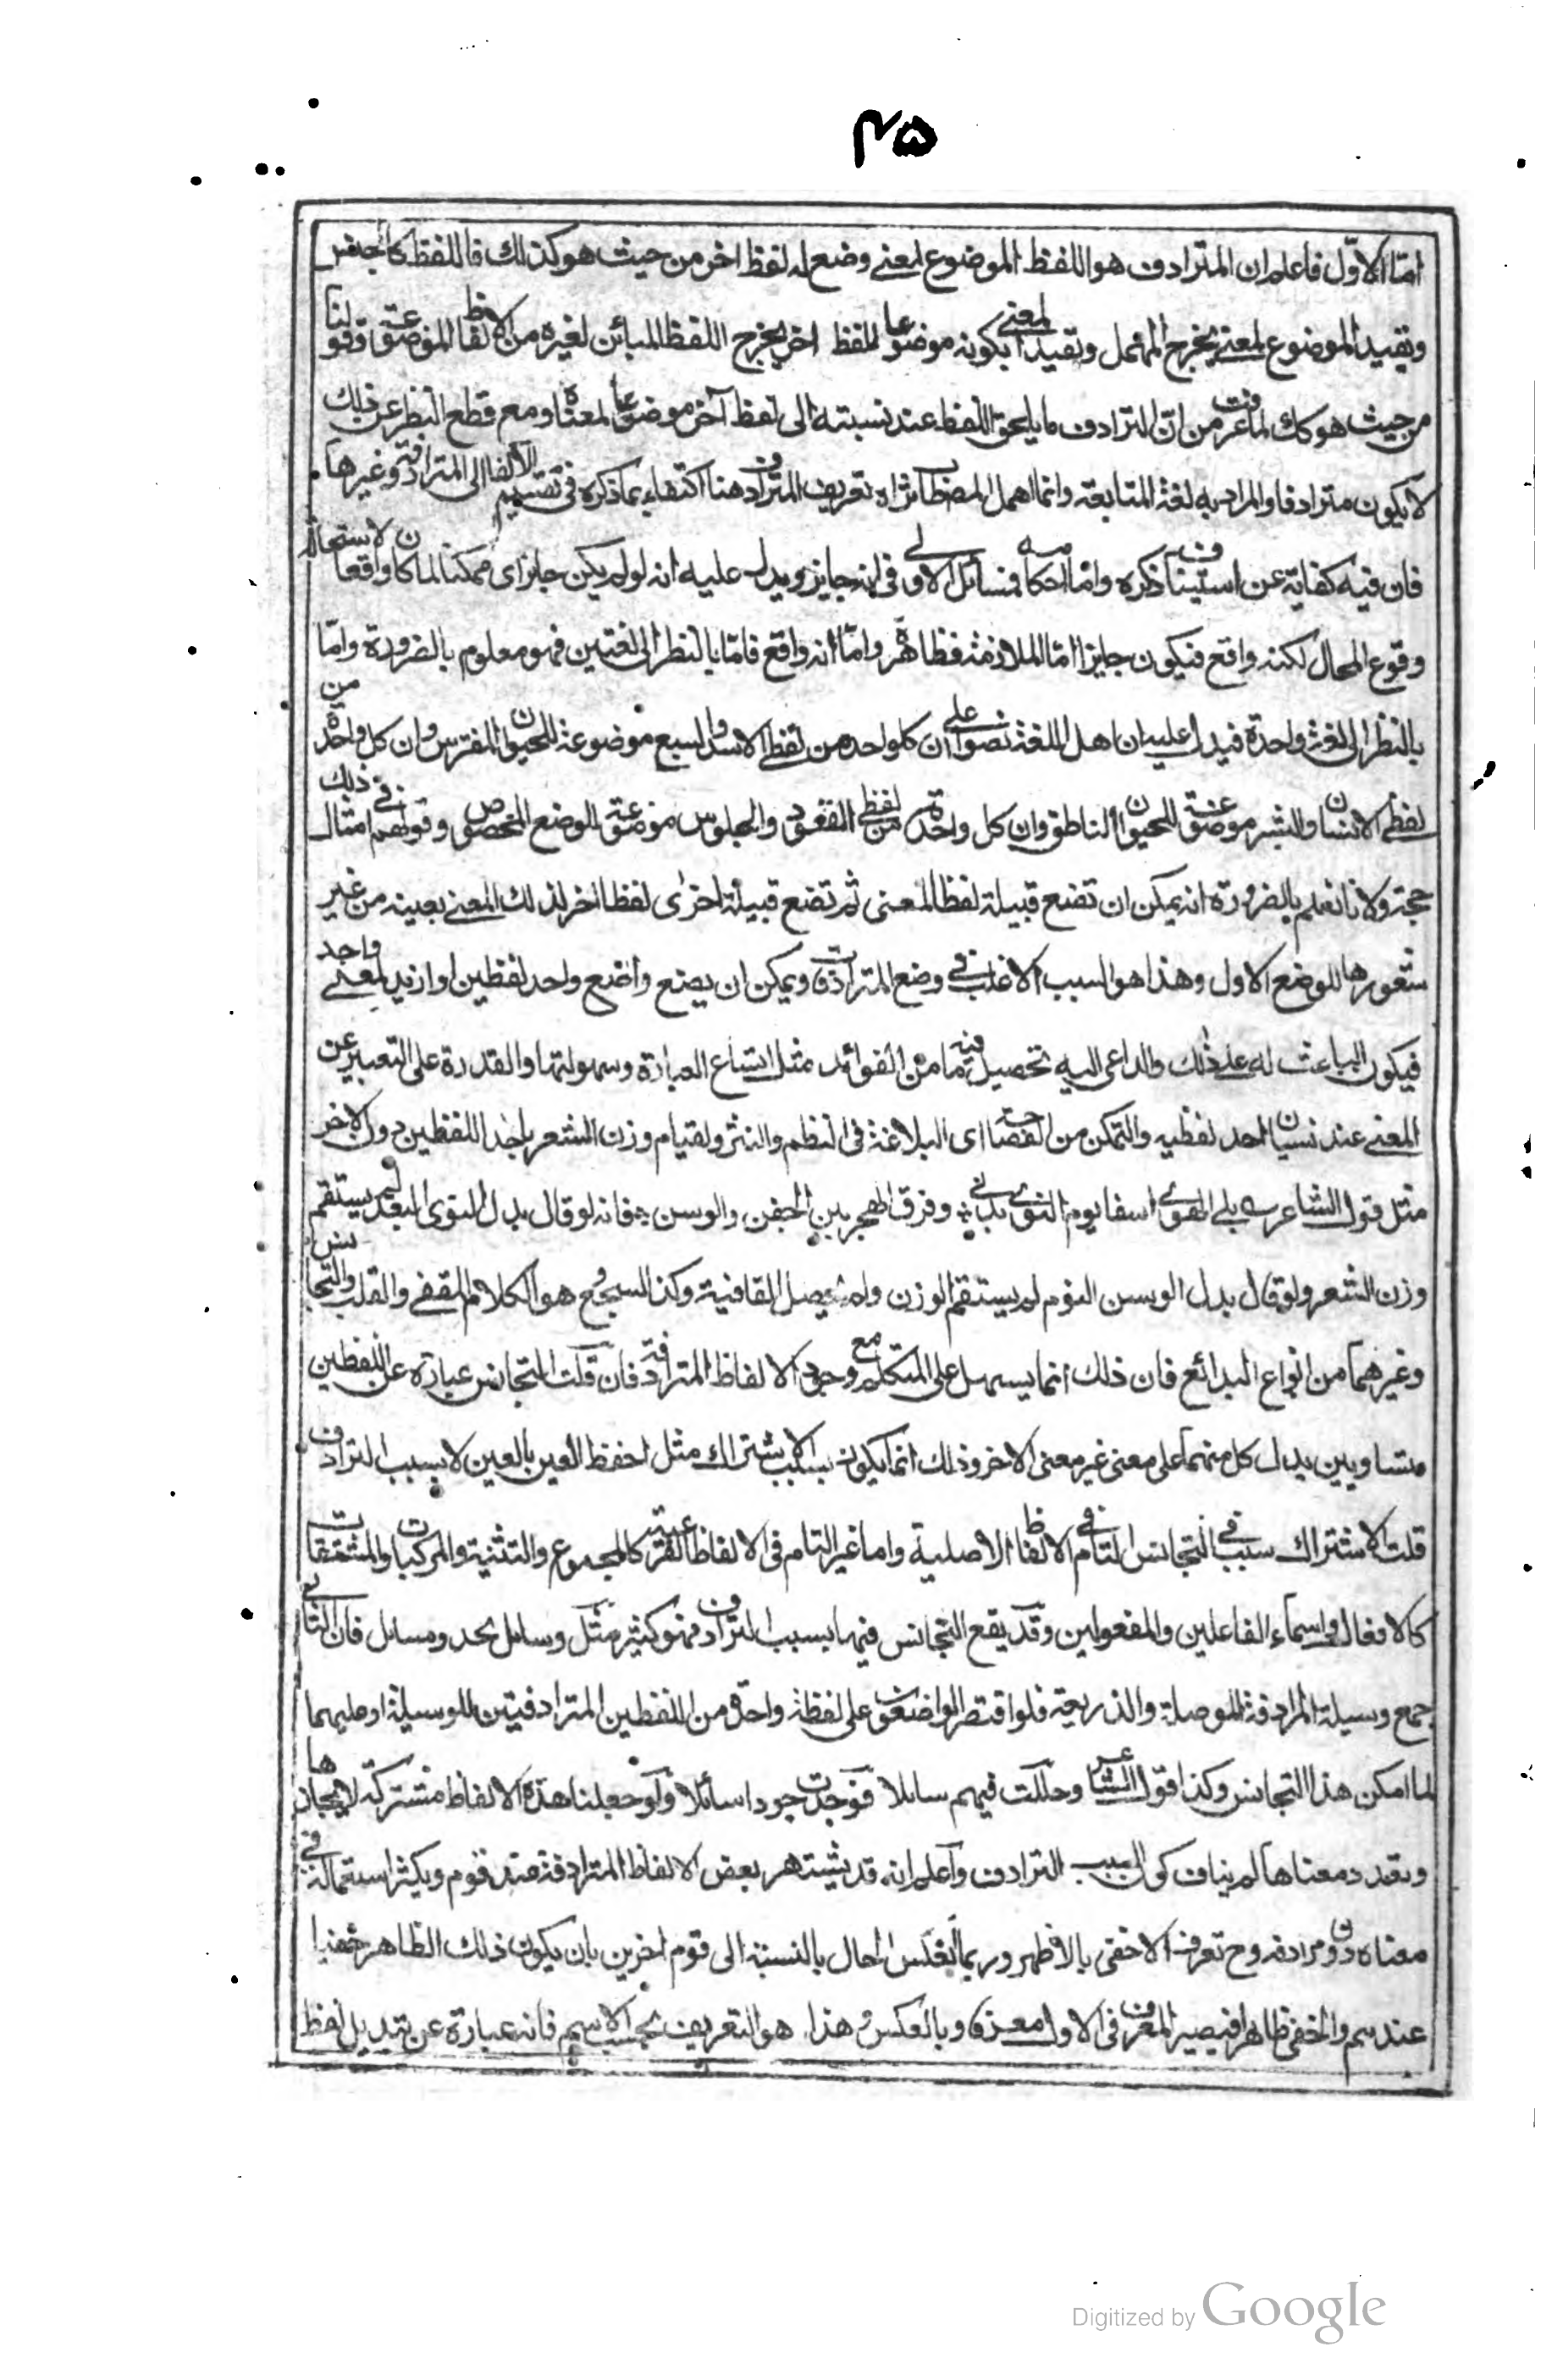 ٤٥
امّا الاوّل فاعلم ان المترادف هو اللفظ الموضوع لمعنى وضع له لفظ اخر من حيث هو كذلك فاللفظ كالجنس
وتقييد الموضوع لمعنى يخرج المهمل وتقييد المعنى بكونه موضوعا للفظ اخر يخرج اللفظ المبائن لغيره من الالفاظ الموضوعة وقولنا
من حيث هو كك لما عرفت من انّ الترادف ما يلحق اللفظ عند نسبته الى لفظ آخر موضوعا لمعناه ومع قطع النظر عن ذلك
لا يكون مترادفا والمراد به لغة المتابعة وانما اهمل المصنف تعريف المترادف هنا اكتفاء بما ذكره فى تقسيم الالفاظ الى المترادفة وغيرها
فان فيه كفاية عن استيناف ذكره وامّا احكامه فمسائل الاولى فى انه جايز ويدل عليه انه لو لم يكن جايزا اى ممكنا لما كان واقعا لاستحالة
وقوع المحال لكنه واقع فيكون جايزا امّا الملازمة فظاهرة وامّا انه واقع فامّا بالنظر الى لغتين فهو معلوم بالضرورة وامّا
بالنظر الى لغة واحدة فيدل عليه ان اهل اللغة نصوا على ان كلواحد من لفظى الاسد والسبع موضوعة للحيوان المفترس وان كل واحدة من
لفظى الانسان والبشر موضوعة للحيوان الناطق وان كل واحدة من لفظى القعود والجلوس موضوعة للوضع المخصوص وقولهم فى امثال ذلك
حجة ولانا نعلم بالضرورة انه يمكن ان تضع قبيلة لفظا لمعنى ثم تضع قبيلة اخرى لفظا اخر لذلك المعنى بعينه من غير
شعورها للوضع الاول وهذا هو السبب الاغلب فى وضع المترادفات ويمكن ان يضع واضع واحد لفظين او ازيد لمعنى واحد
فيكون الباعث له على ذلك والداعى اليه تحصيل ما فيه من الفوائد مثل اتساع العبارة وسهولتها والقدرة على التعبير عن
المعنى عند نسيان احد لفظيه والتمكن من الفصاحة اى البلاغة فى النظم والنثر ولقيام وزن الشعر باحد اللفظين دون الاخر
مثل قول الشاعر بلى الهوى اسفا يوم النوى بدنى وفرق الهجر بين الجفن والوسن فانه لو قال بدل النوى البعد لم يستقم
وزن الشعر ولو قال بدل الوسن النوم لم يستقم الوزن ولم يحصل القافية وكذا السجع وهو الكلام المقفى والقلب والتجانس
وغيرهما من انواع البدائع فان ذلك انما يسهل على المتكلم مع وجود الالفاظ المترادفة فان قلت التجانس عبارة عن اللفظين
متساويين يدل كل منهما على معنى غير معنى الاخر وذلك انما يكون بسبب الاشتراك مثل احفظ العين بالعين لا بسبب الترادف
قلت الاشتراك سبب فى التجانس التام فى الالفاظ الاصلية واما غير التام فى الالفاظ الفرعية كالمجموع والتثنية والمركبات والمشتقات
كالافعال واسماء الفاعلين والمفعولين وقد يقع التجانس فيها بسبب الترادف فهو كثير مثل وسائل بحد ومسائل فان الثانى
جمع وسيلة المرادفة للوصلة والذريعة فلو اقتصر الواضعون على لفظة واحدة من اللفظين المترادفين للوسيلة او عليهما
لما امكن هذا التجانس وكذا قول الشاعر وحللت فيهم سائلا فوجدت جودا سائلا ولو جعلنا هذه الالفاظ مشتركة لايجادها
وتعدد معناها لم يناف كون السبب الترادف واعلم انه قد يشتهر بعض الالفاظ المترادفة عند قوم ويكثر استعماله فى
معناه دون مرادفه وح تعرف الاخفى بالاظهر وربما انعكس الحال بالنسبة الى قوم اخرين بان يكون ذلك الظاهر خفيا
عندهم والخفى ظاهرا فيصير المعرف فى الاول معرفا وبالعكس وهذا هو التعريف بحسب الاسم فانه عبارة عن تبديل لفظ
Digitized by Google